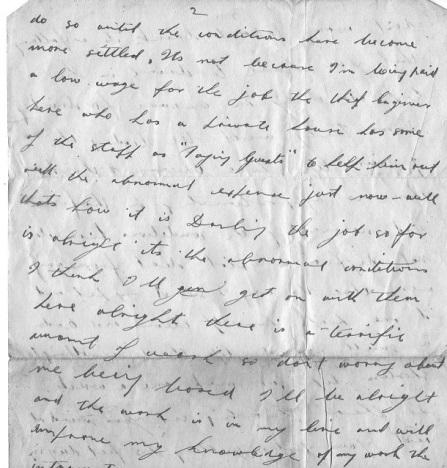 2
do so until the conditions have become
more settled. Its not because I'm being paid
a low wage for the job the Chief Engineer
here who has a private house has some
of the staff as "Paying Guests" to help him out
with the abnormal expense just now - well
thats how it is Darling the job so far
is alright its the abnormal conditions
I think I'll get on with them
here alright there is a terrific
amount of work so don't worry about
me being bored I'll be alright
and the work is in my line and will
improve my knowledge of my work the